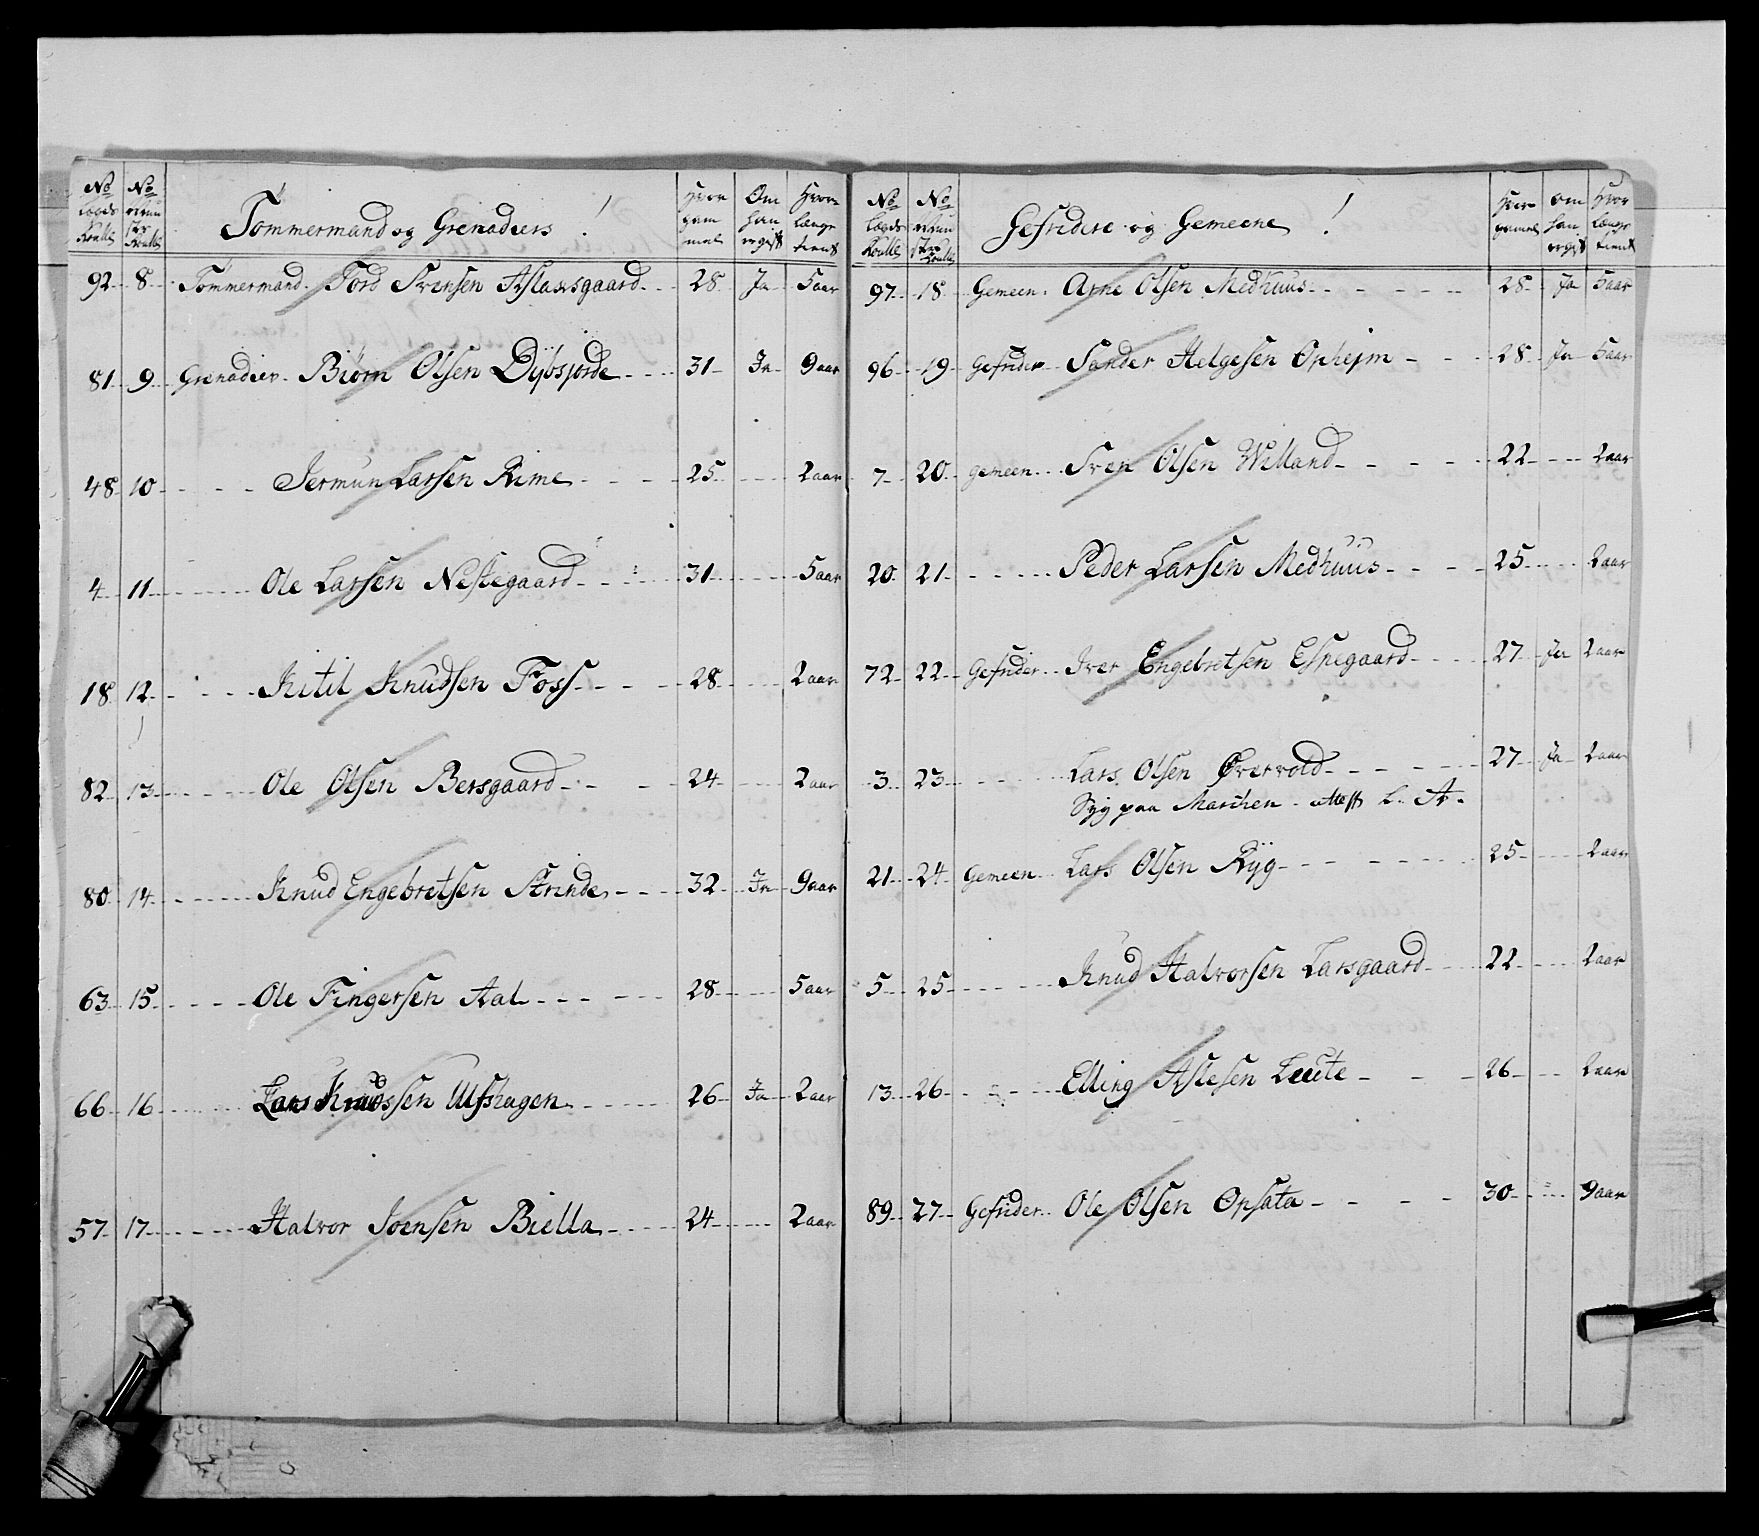 No Lægds Roulle | No Mun ster Roulle | Tømmermand og Grenadiers! | Hvor gam mel | Om han er gift | Hvor længe tient
92 8 Tømmermand Tord Svensen Aslaxsgaard 28 Ja 5 aar
81 9 Grenadier Biørn Olsen Dÿbsjorde 31 Ja 9 aar
48 10 Jermun Larsen Rime 25 2 aar
4 11 Ole Larsen Nestegaard 31 5 aar
18 12 Kitil Knudsen Foss 28 2 aar
82 13 Ole Olsen Bersgaard 24 2 aar
80 14 Knud Engebretsen Strinde 32 Ja 9 aar
63 15 Ole Fingersen Aal 28 5 aar
66 16 Lars Knudssen Ulfshagen 26 Ja 2 aar
57 17 Halvor Joensen Biella 24 2 aar
No Lægds Roulle | No Mun ster Roulle | Gefridere og Gemeene! | Hvor gamel | om han er gift | Hvor længe tient
97 18 Gemeen Arne Olsen Medhuus 28 Ja 5 aar
96 19 Gefrider Sander Helgesen Opheim 28 Ja 5 aar
7 20 Gemeen Sven Olsen Villand 22 2 aar
20 21 Peder Larsen Medhuus 25 2 aar
72 22 Gefrider Iver Engebretsen Espegaard 27 Ja 2 aar
3 23 Lars Olsen Øvervold 27 Ja 2 aar
Syg paa Marchen attest L. A.
21 24 Gemeen Lars Olsen Ryg 25 2 aar
5 25 Knud Halvorsen Larsgaard 22 2 aar
13 26 Elling Aslesen Leute 26 2 aar
89 27 Gefrider Ole Olsen Opsata 30 9 aar